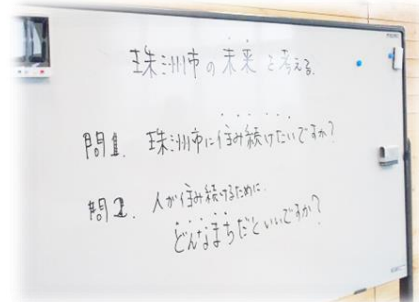 珠洲市の未来を考える。
問1. 珠洲市に住み続けたいですか?
問2. 人が住み続けるために、
どんなまちだといいですか?